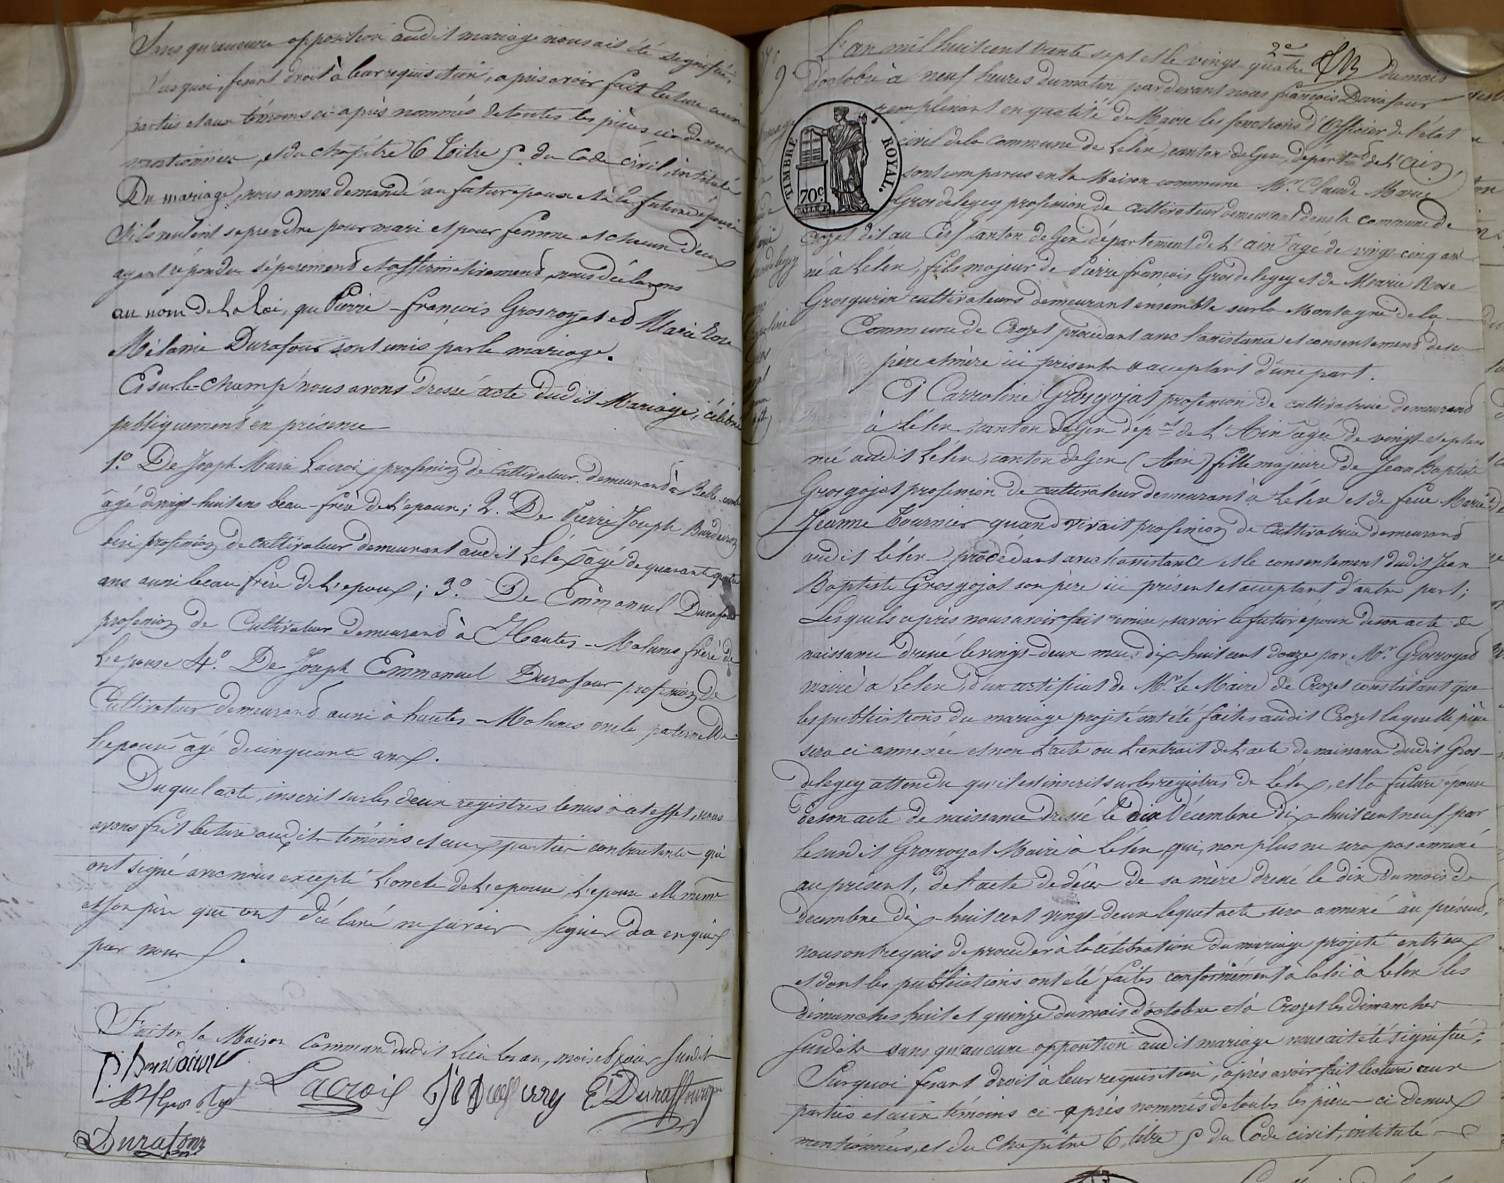 Sans qu'aucune opposition audit mariage nous ait été signifiée.
Sur quoi, ferant droit à leur requisition, après avoir fait lecture aux
parties et aux témoins ci après nommés de toutes les pièces ci dessus
mentionnées, et du chapitre 6 Titre 5. du Code civil, intitulé
Du mariage, nous avons demandé au futur époux et à la future épouse
s'ils veulent se prendre pour mari et pour femme et chacun d'eux
ayant répondu séparement et affirmativement, nous déclarons
au nom de la Loi, que Pierre-françois Grosroyat et Marie Rose
Mélanie Durafour sont unis par le mariage.
Et sur-le-champ nous avons dressé acte dudit Mariage, célébré
publiquement en présence
1.° De Joseph Marie Lacroix, profession de Cultivateur demeurant à Belle-
âgé de vingt-huit ans beau-frère de l'epoux; 2.° De Pierre Joseph
profession de cultivateur demeurant audit Lélex âgé de quarante quatre
ans aussi beau frère de l'epoux; 3.° De Emmanuel Durafour
profession de Cultivateur demeurant à Hautes-Molunes frère de
l'epouse 4.° De Joseph Emmanuel Durafour profession de
Cultivateur demeurant aussi à hautes-Molunes oncle paternel de
l'epouse âgé de cinquante ans.
Duquel acte, inscrit sur les deux registres tenus à cet effet, nous
avons fait lecture audits témoins et aux parties contractantes qui
ont signé avec nous excepté l'oncle de l'epouse, l'epouse elle même
et son père qui ont déclaré ne savoir signer de ce enquis
par nous.
Fait en la Maison Commune dudit Lieu les an, mois et jour susdits
Lacroix
E. Duraffourg
Durafour
2.e
L'an mil huit cent trente sept et le vingt quatre du mois
d'octobre à neuf heures du matin par devant nous françois Durafour
remplissant en qualité de Maire les fonctions d'Officier de l'état
civil de la commune de Lélex, canton de Gex, départ.t de l'Ain,
sont comparus en la Maison commune M.r Claude Marie
Grosdelegey profession de cultivateur demeurant dans la commune de
Crozet dit au canton de Gex département de l'Ain âgé de vingt cinq ans
né à Lélex, fils majeur de Pierre françois Grosdelegey et de Marie Rose
Grosgurin cultivateurs demeurant ensemble sur la Montagne de la
Commune de Crozet procédant avec l'assistance et consentement de ses
père et mère ici présents et acceptant d'une part.
Et Carroline Grosgojat profession de cultivatrice demeurant
à Lélex, canton de Gex dép.t de l'Ain âgée de vingt sept ans
née audit Lélex, canton de Gex (Ain) fille majeure de Jean Baptiste
Grosgojat profession de cultivateur demeurant à Lélex et de feue Marie
Jeanne Tournier quand vivait profession de cultivatrice demeurant
audit Lélex, procédant avec l'assistance et le consentement dudit Jean
Baptiste Grosgojat son père ici présent et acceptant d'autre part;
Lesquels après nous avoir fait remise, savoir le futur époux de son acte de
naissance dressé le vingt deux mai dix huit cent douze par M.r Grosroyat
maire à Lélex, d'un certificat de M.r le Maire de Crozet constatant que
les publications du mariage projeté ont été faites audit Crozet laquelle pièce
sera ci annexée et non l'acte ou l'extrait de l'acte de naissance dudit Gros-
delegey attendu qu'il est inscrit sur les registres de Lélex, et la future épouse
de son acte de naissance dressé le dix Décembre dix huit cent neuf par
le susdit Grosroyat Maire à Lélex, qui, non plus ne sera pas annexé
au présent, de l'acte de décès de sa mère dressé le dix du mois de
décembre dix-huit cent vingt deux lequel acte sera annexé au présent,
nous ont requis de procéder à la célébration du mariage projeté entr'eux
et dont les publications ont été faites conformément à la loi à Lélex les
dimanches huit et quinze du mois d'octobre et à Crozet les dimanches
susdits sans qu'aucune opposition audit mariage nous ait été signifiée;
Surquoi ferant droit à leur requisition, après avoir fait lecture aux
parties et aux témoins ci-après nommés de toutes les pièces ci-dessus
mentionnées, et du chapitre 6, titre 5 du Code civil, intitulé
TIMBRE ROYAL.
70c